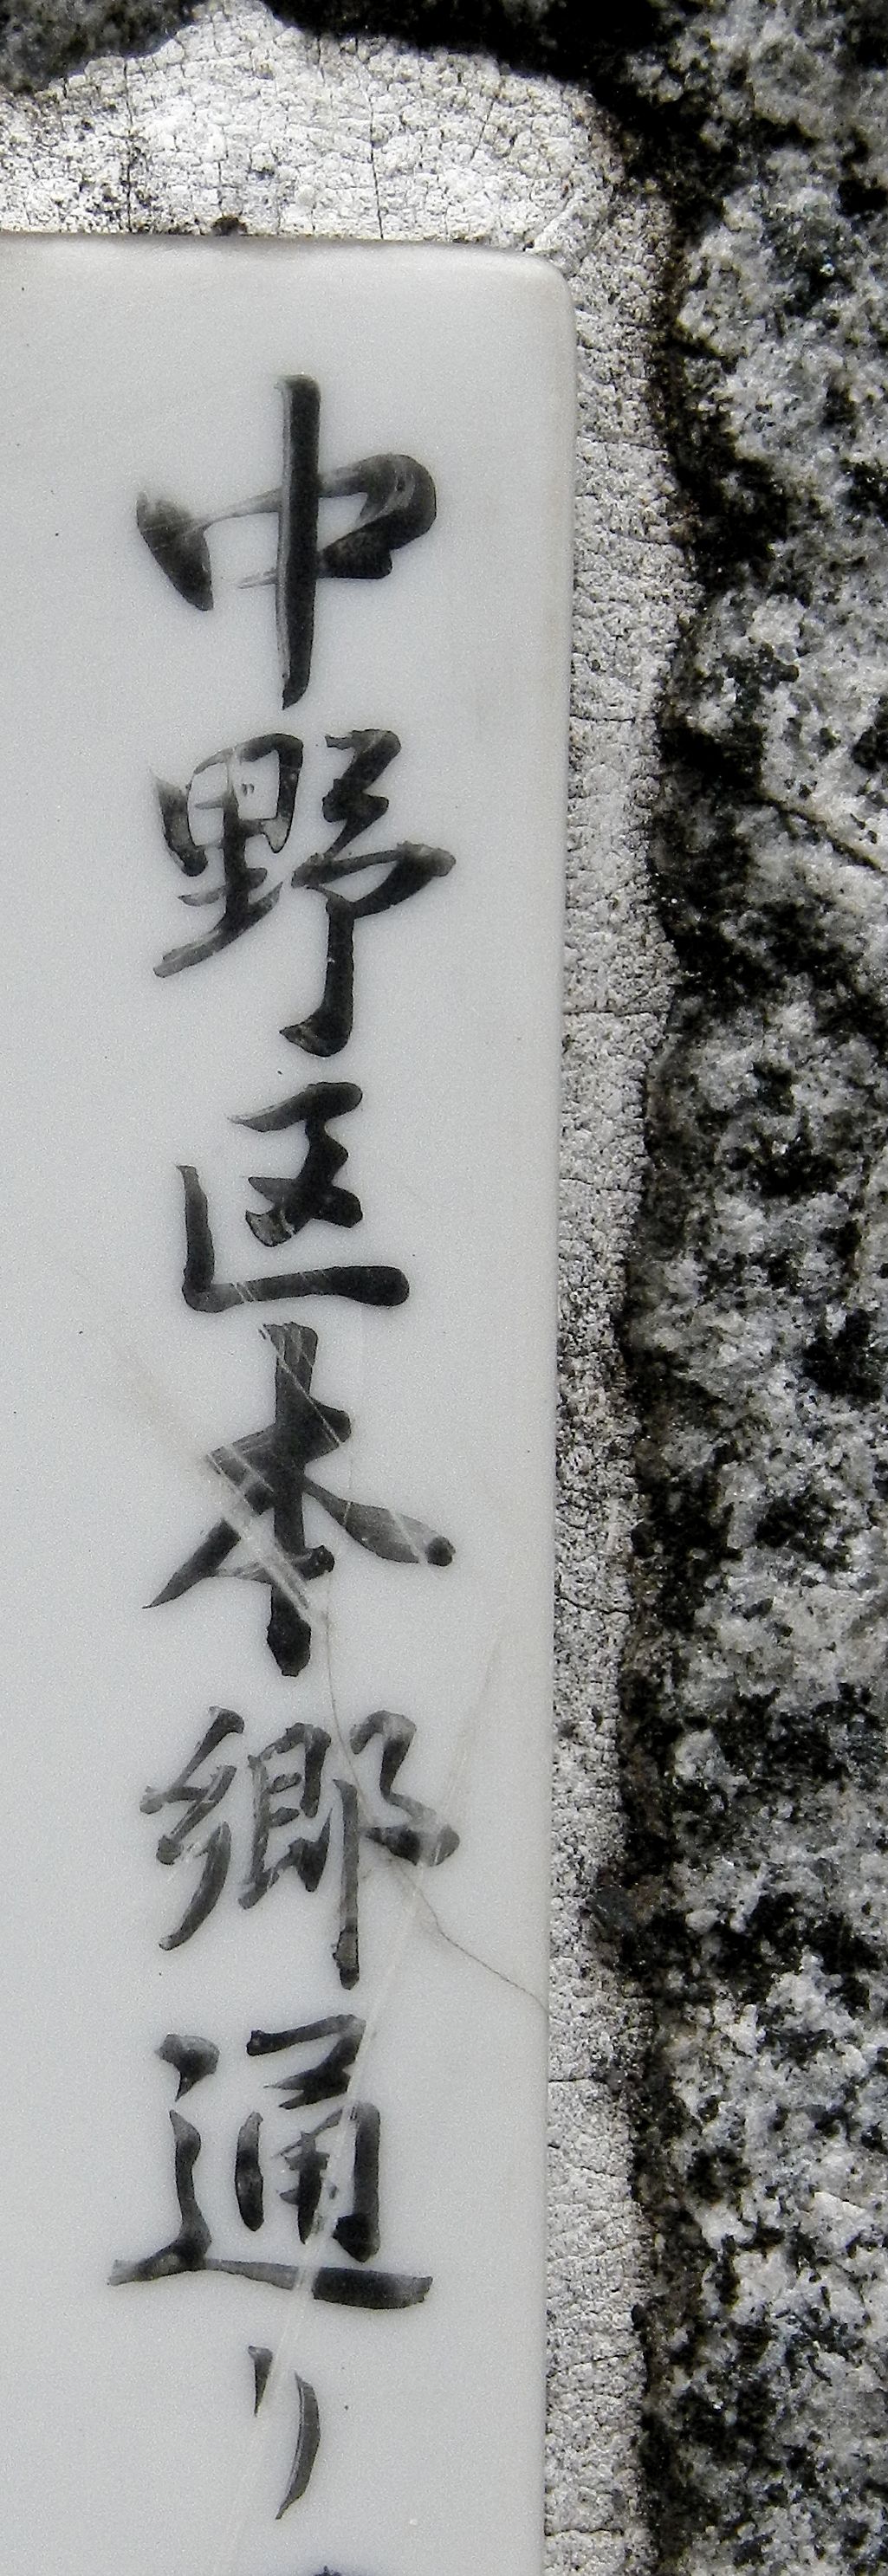 中野区本郷通り